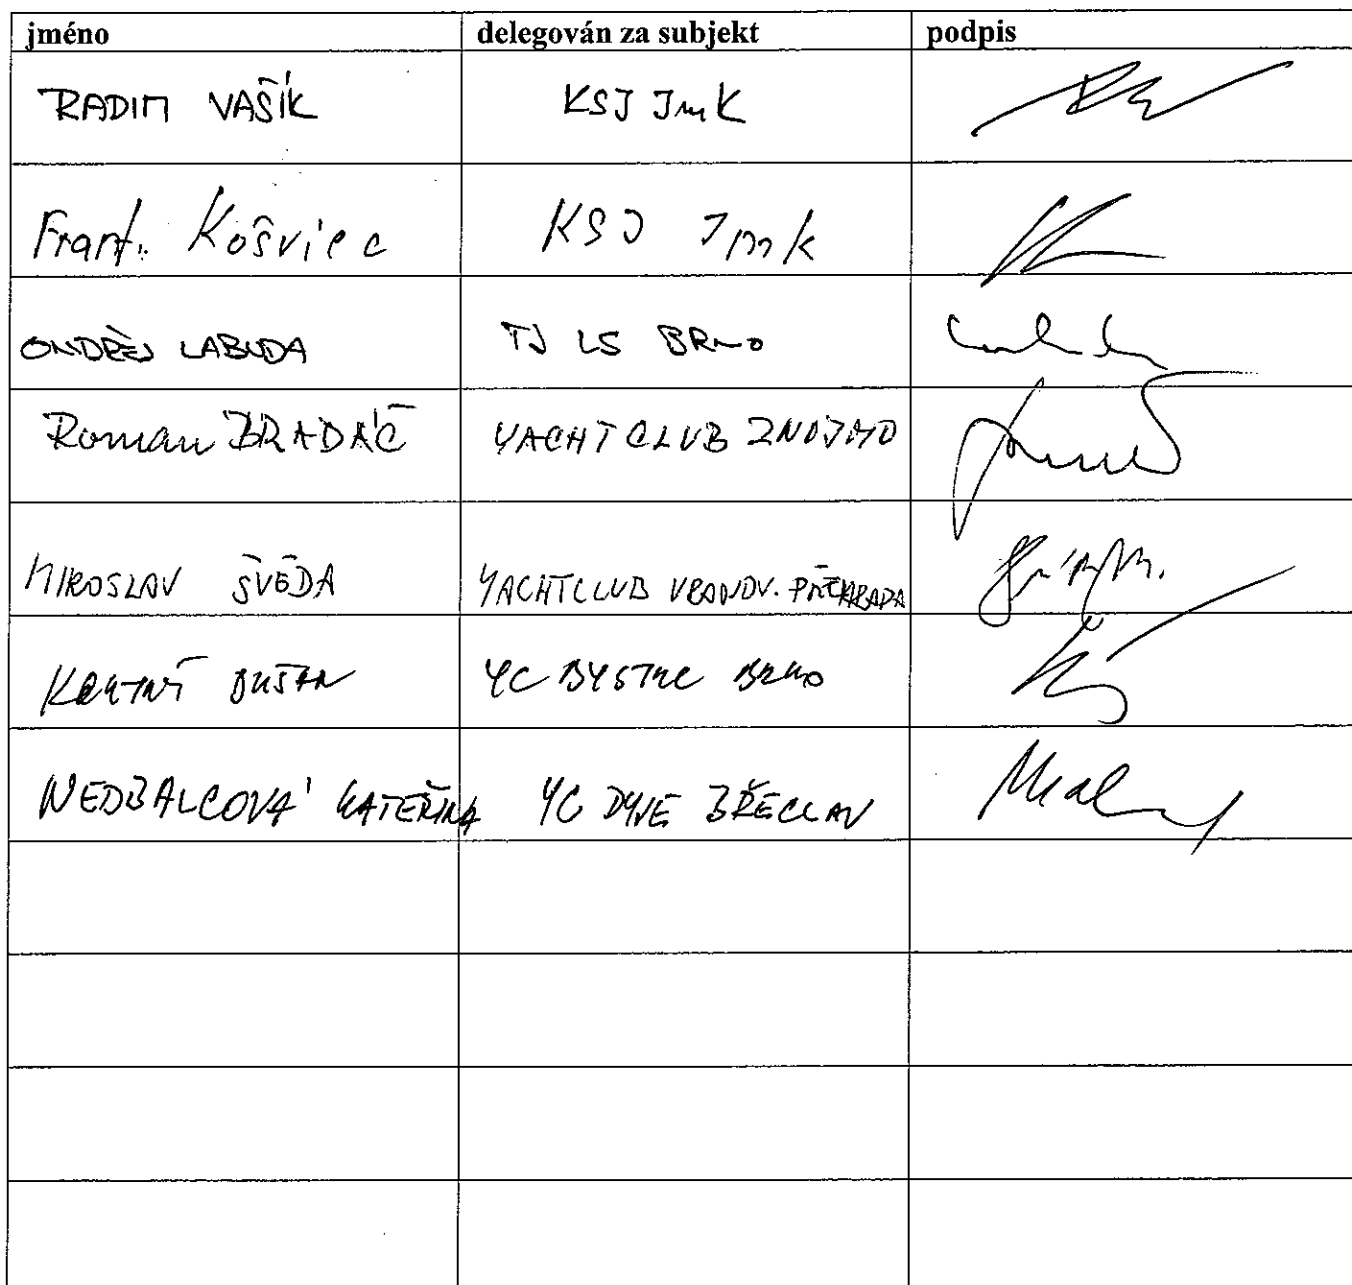 jméno delegován za subjekt podpis
RADIM VAŠÍK KSJ JmK
Frant. Košviec KSJ Jmk
ONDŘEJ LABUDA TJ LS BRNO
Roman BRADÁČ YACHT CLUB ZNOJMO
MIROSLAV ŠVÉDA YACHTCLUB VRANOV. PŘEHRADA
DUŠAN YC BYSTRC BRNO
NEDBALCOVÁ KATEŘINA YC DYJE BŘECLAV